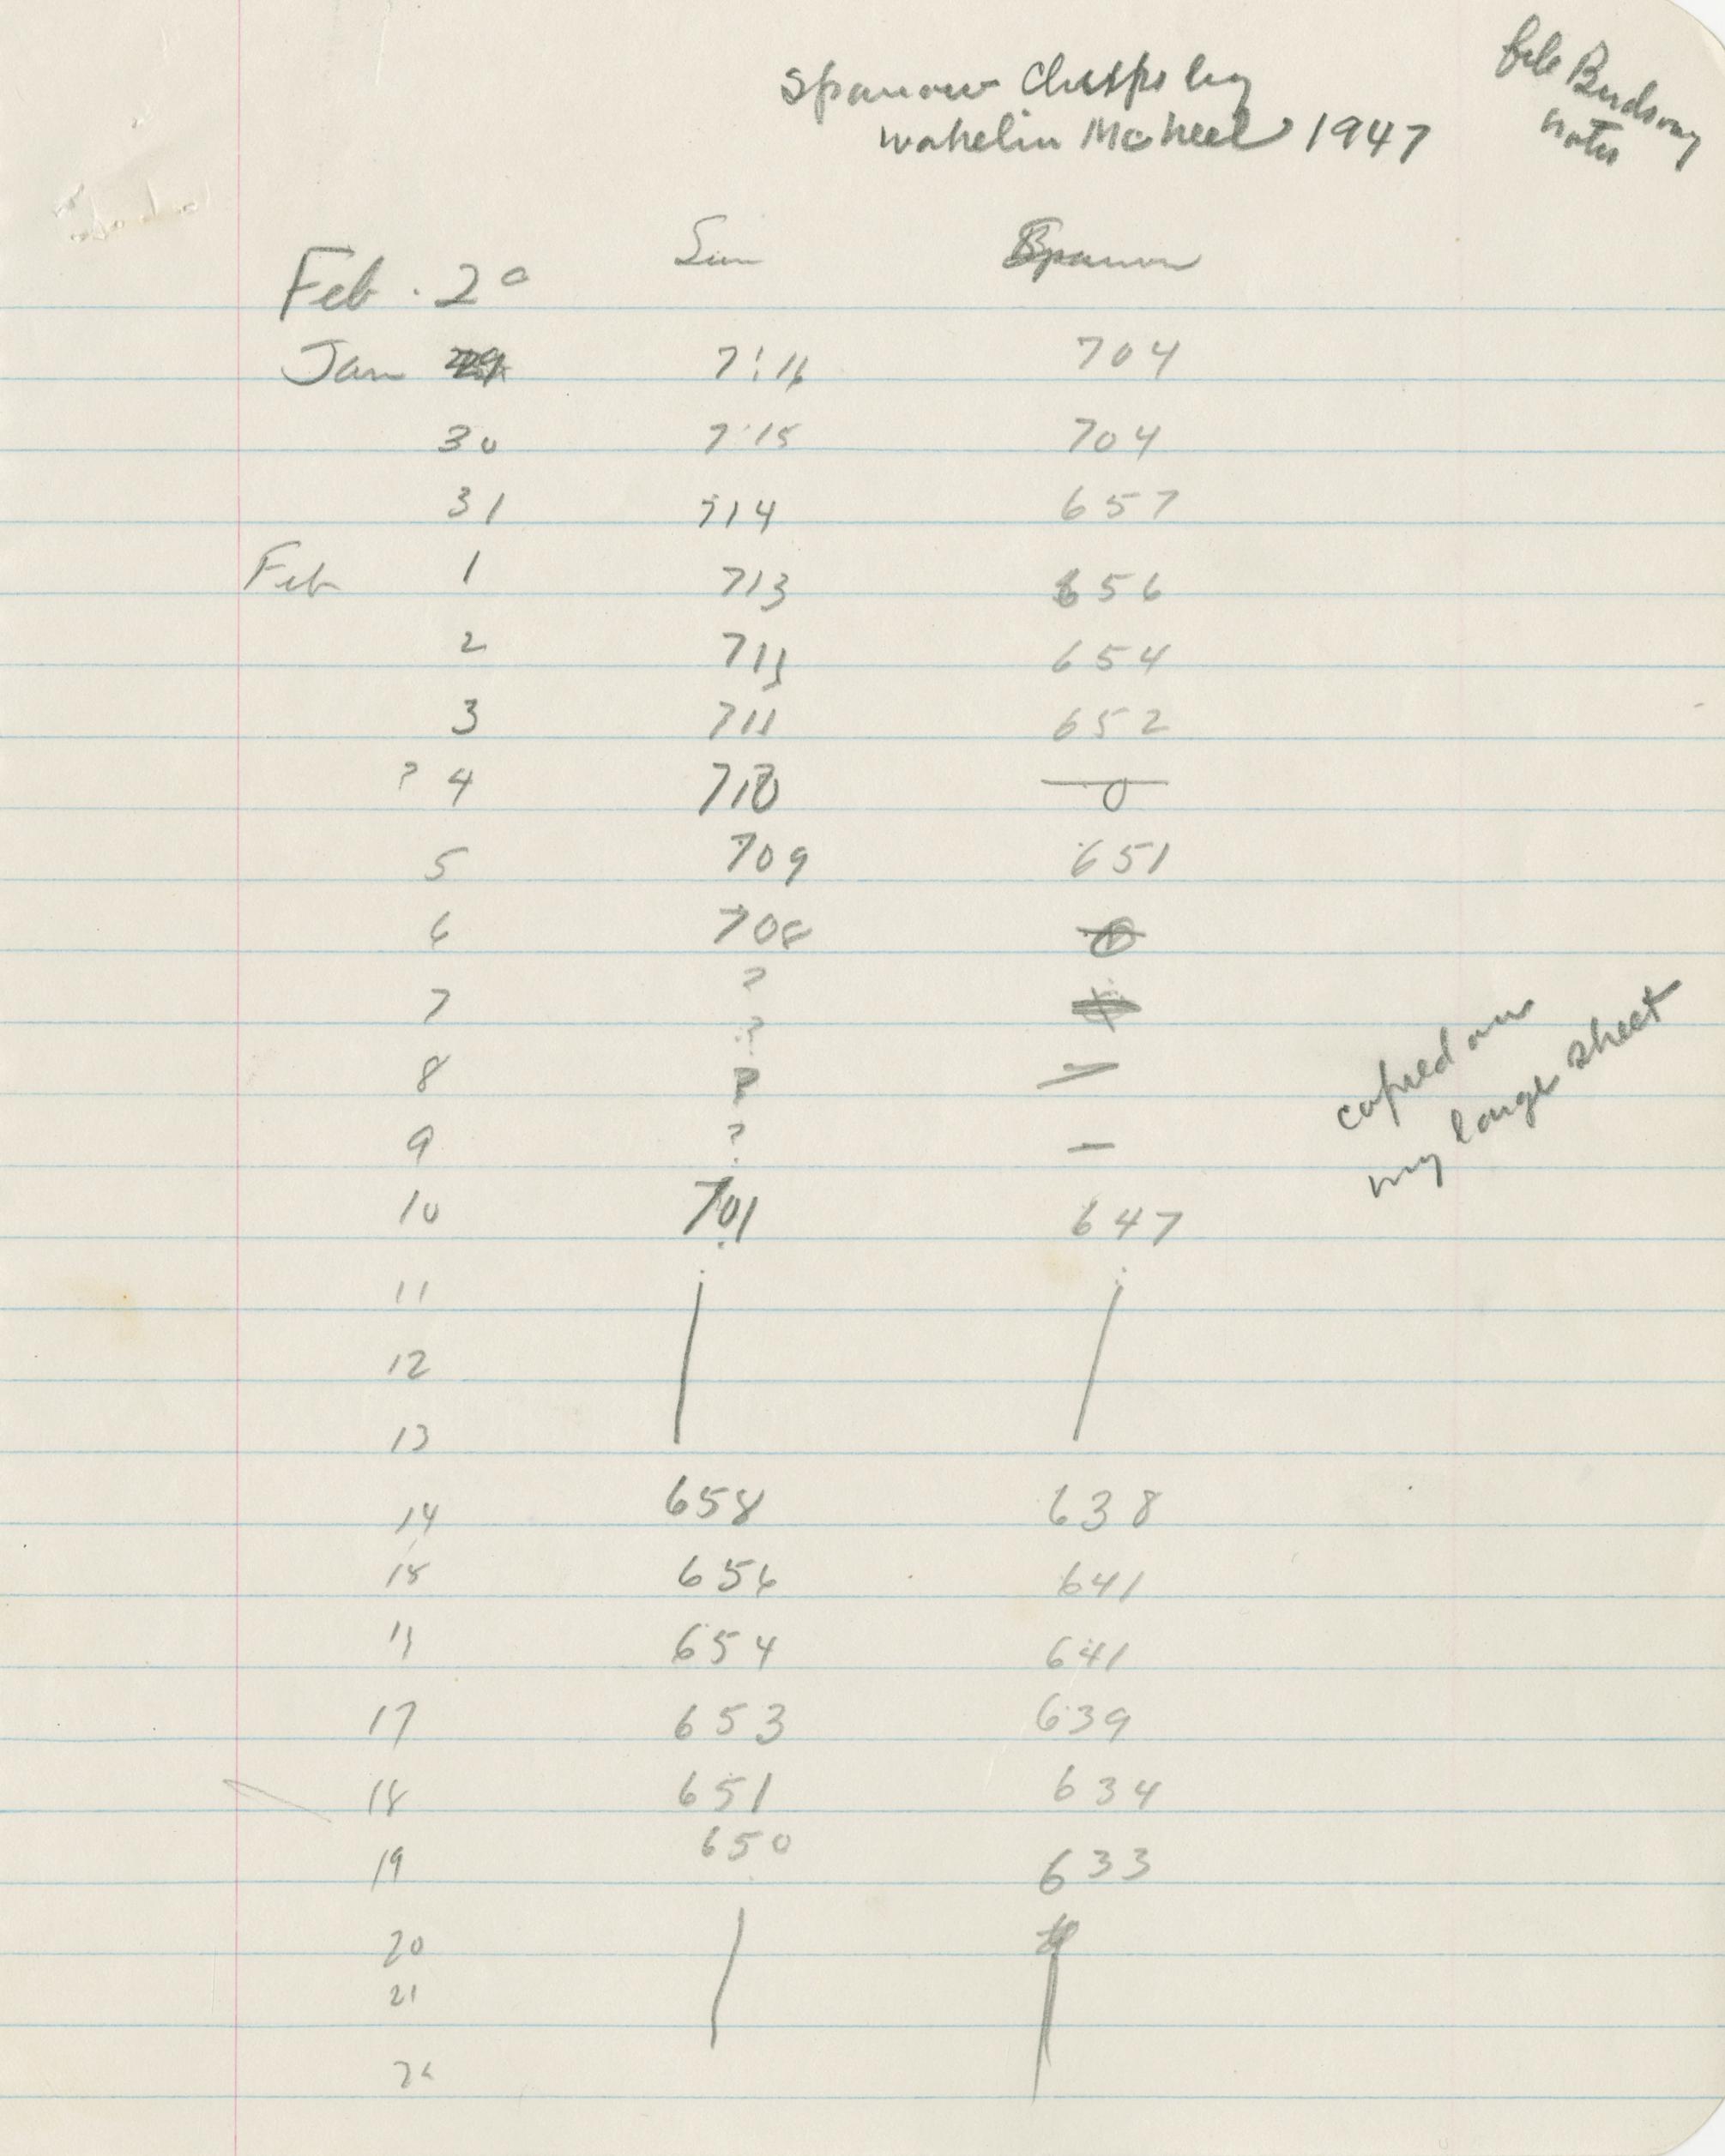 Sparrow Chirps by
Wakelin McNeel 1947
file Birdsong
notes
Sun Sparrow
Feb. 20
Jan 29 7:16 704
30 7:15 704
31 714 657
Feb 1 713 656
2 711 654
3 711 652
? 4 710 0
5 709 651
6 708
7 ?
?
8 ? —
9 ? —
10 701 647
copied on
my large sheet
11
12
13
14 658 638
15 656 641
11 654 641
17 653 639
18 651 634
19 650 633
20
21
22